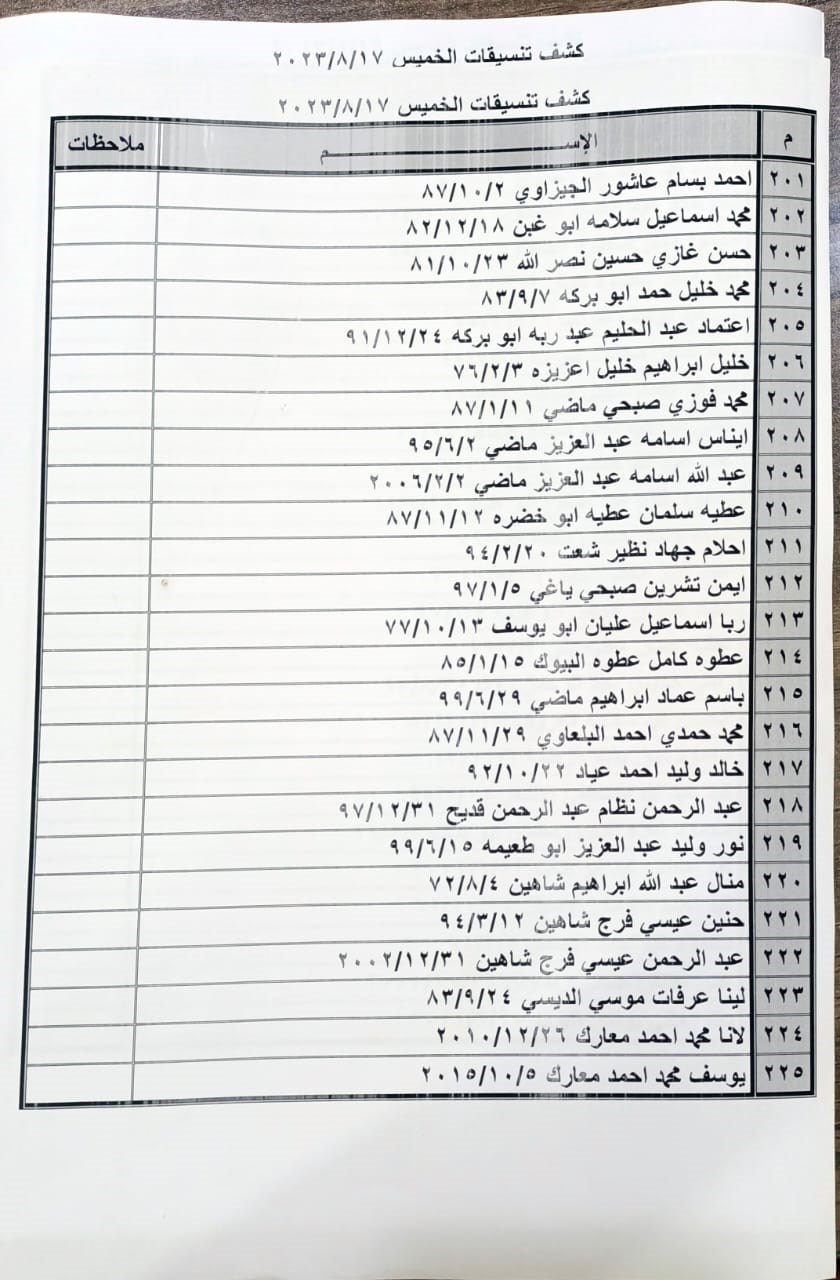 كشف تنسيقات الخميس ٢٠٢٣/٨/١٧
كشف تنسيقات الخميس ٢٠٢٣/٨/١٧
م الإســــــــــــم ملاحظات
٢٠١ احمد بسام عاشور الجيزاوي ٨٧/١٠/٢
٢٠٢ محمد اسماعيل سلامه ابو غبن ٨٢/١٢/١٨
٢٠٣ حسن غازي حسين نصر الله ٨١/١٠/٢٣
٢٠٤ محمد خليل حمد ابو بركه ٨٣/٩/٧
٢٠٥ اعتماد عبد الحليم عبد ربه ابو بركه ٩١/١٢/٢٤
٢٠٦ خليل ابراهيم خليل اعزيزه ٧٦/٢/٣
٢٠٧ محمد فوزي صبحي ماضي ٨٧/١/١١
٢٠٨ ايناس اسامه عبد العزيز ماضي ٩٥/٦/٢
٢٠٩ عبد الله اسامه عبد العزيز ماضي ٢٠٠٦/٢/٢
٢١٠ عطيه سلمان عطيه ابو خضره ٨٧/١١/١٢
٢١١ احلام جهاد نظير شعت ٩٤/٢/٢٠
٢١٢ ايمن تشرين صبحي ياغي ٩٧/١/٥
٢١٣ ربا اسماعيل عليان ابو يوسف ٧٧/١٠/١٣
٢١٤ عطوه كامل عطوه البيوك ٨٥/١/١٥
٢١٥ باسم عماد ابراهيم ماضي ٩٩/٦/٢٩
٢١٦ محمد حمدي احمد البلعاوي ٨٧/١١/٢٩
٢١٧ خالد وليد احمد عياد ٩٢/١٠/٢٢
٢١٨ عبد الرحمن نظام عبد الرحمن قديح ٩٧/١٢/٣١
٢١٩ نور وليد عبد العزيز ابو طعيمه ٩٩/٦/١٥
٢٢٠ منال عبد الله ابراهيم شاهين ٧٢/٨/٤
٢٢١ حنين عيسي فرج شاهين ٩٤/٣/١٢
٢٢٢ عبد الرحمن عيسي فرج شاهين ٢٠٠٢/١٢/٣١
٢٢٣ لينا عرفات موسي الديسي ٨٣/٩/٢٤
٢٢٤ لانا محمد احمد معارك ٢٠١٠/١٢/٢٦
٢٢٥ يوسف محمد احمد معارك ٢٠١٥/١٠/٥